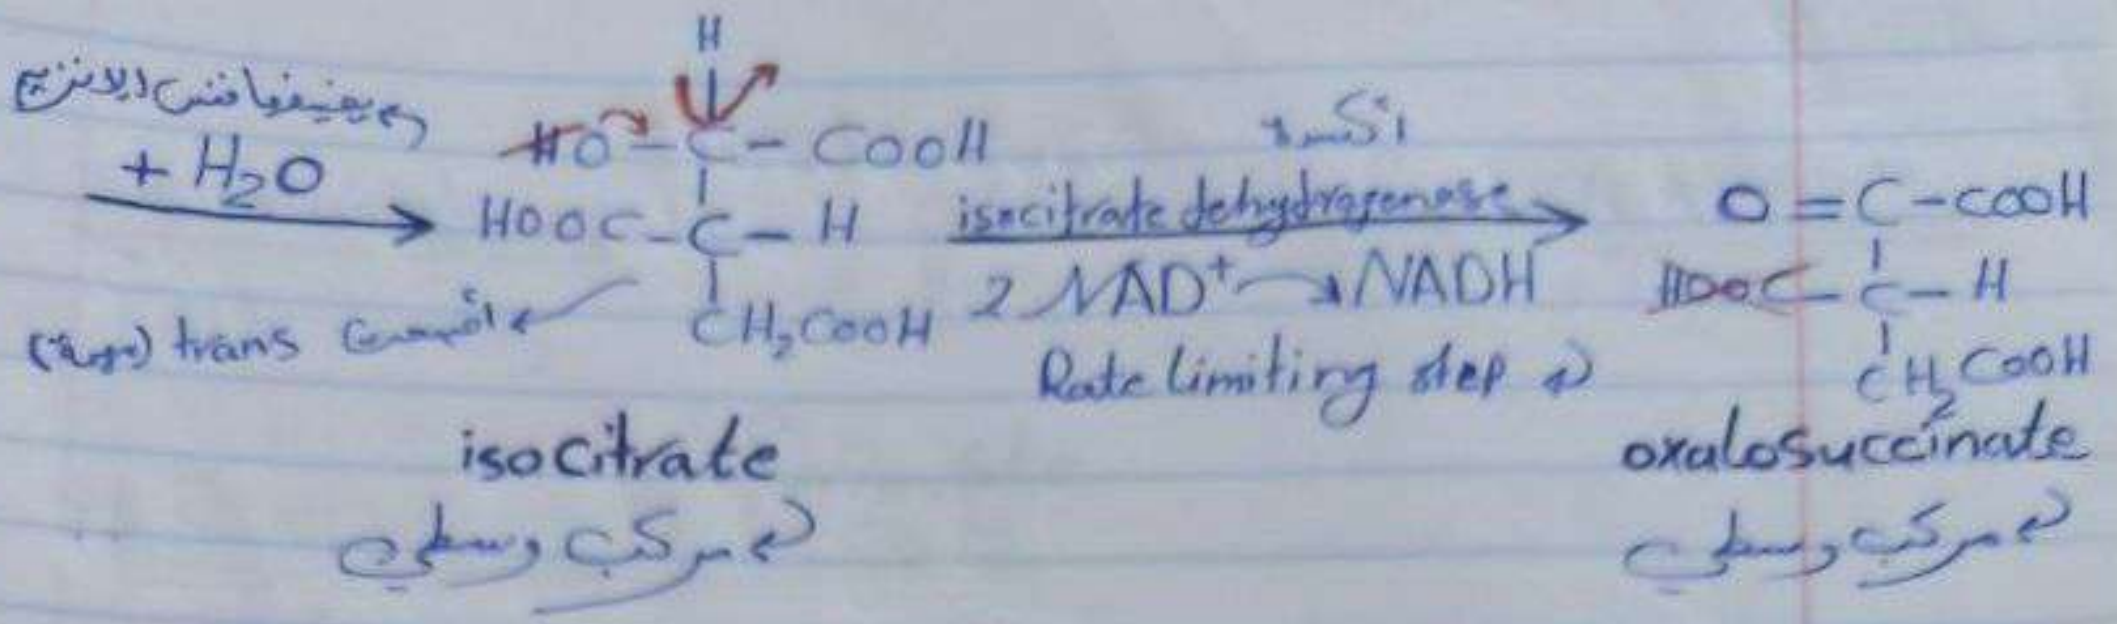 يضيفها نفس الانزيم
+ H₂O
H
HO - C - COOH
HOOC - C - H
CH₂COOH
(مهمة) trans اصبحت
isocitrate
مركب وسطي
أكسدة
isocitrate dehydrogenase
2 NAD⁺ → NADH
Rate limiting step
O = C - COOH
HOOC - C - H
CH₂COOH
oxalosuccinate
مركب وسطي